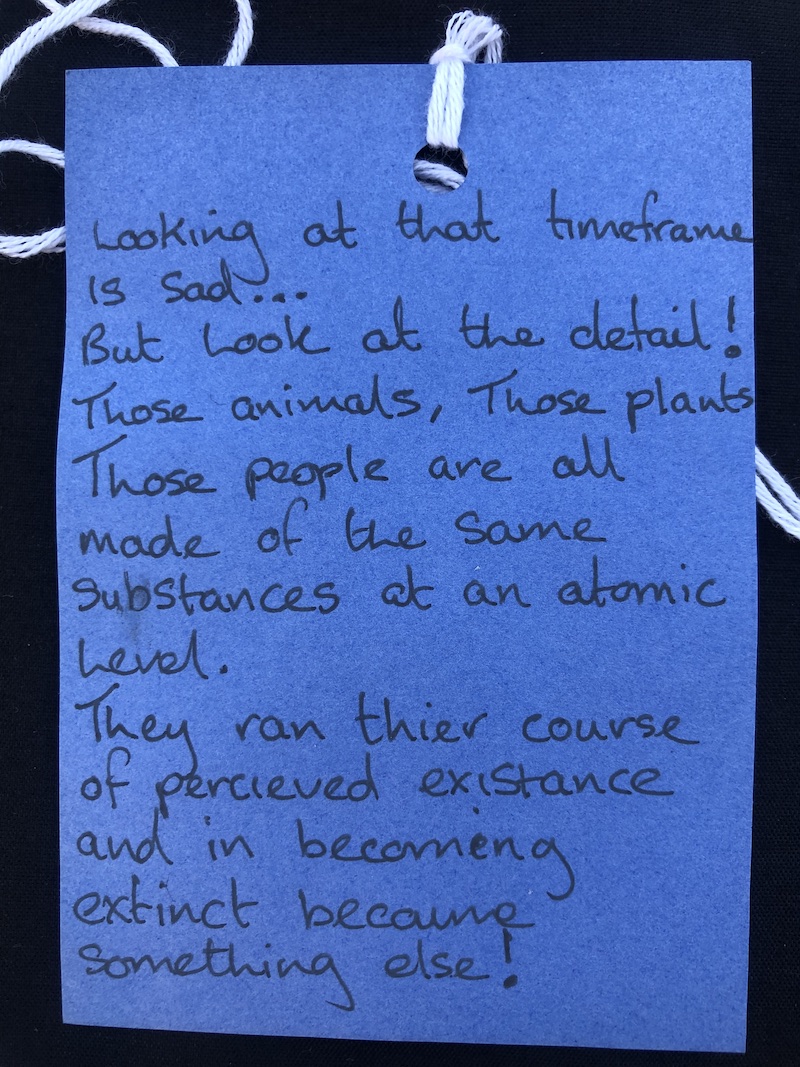 Looking at that timeframe
is sad...
But look at the detail!
Those animals, Those plants
Those people are all
made of the same
substances at an atomic
level.
They ran thier course
of percieved existance
and in becomeing
extinct becaume
something else!